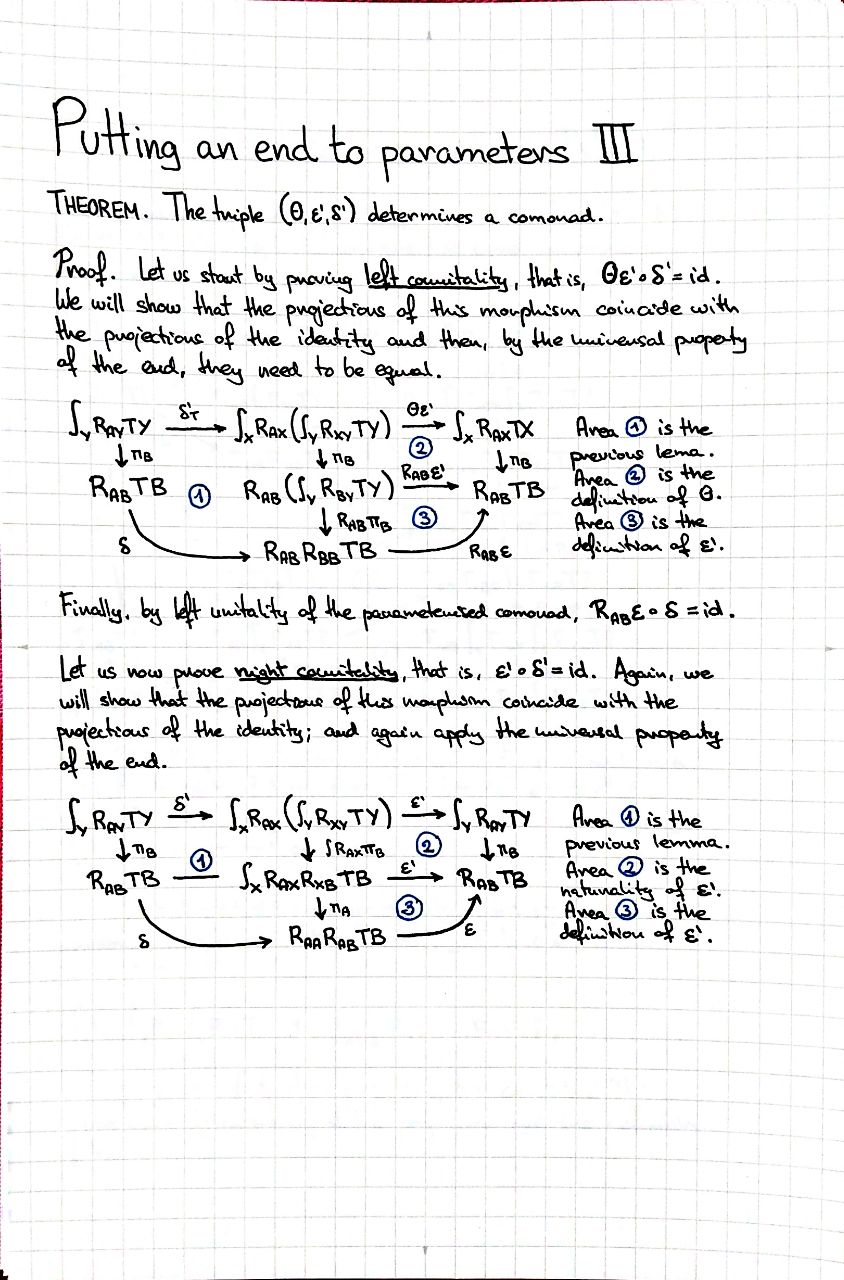 Putting an end to parameters III
THEOREM. The triple (Θ,ε',δ') determines a comonad.
Proof. Let us start by proving left counitality, that is, Θε'∘δ'=id.
We will show that the projections of this morphism coincide with
the projections of the identity and then, by the universal property
of the end, they need to be equal.
∫_Y R_AY TY —δ'_T→ ∫_X R_AX (∫_Y R_XY TY) —Θε'→ ∫_X R_AX TX
↓π_B ↓π_B ② ↓π_B
R_AB TB ① R_AB (∫_Y R_BY TY) —R_AB ε'→ R_AB TB
↓R_AB π_B ③
δ R_AB R_BB TB R_AB ε
Area ① is the
previous lema.
Area ② is the
definition of Θ.
Area ③ is the
definition of ε'.
Finally, by left unitality of the parameterised comonad, R_AB ε∘δ=id.
Let us now prove right counitality, that is, ε'∘δ'=id. Again, we
will show that the projections of this morphism coincide with the
projections of the identity; and again apply the universal property
of the end.
∫_Y R_AY TY —δ'→ ∫_X R_AX (∫_Y R_XY TY) —ε'→ ∫_Y R_AY TY
↓π_B ① ↓∫R_AX π_B ② ↓π_B
R_AB TB — ∫_X R_AX R_XB TB —ε'→ R_AB TB
↓π_A ③
δ R_AA R_AB TB ε
Area ① is the
previous lemma.
Area ② is the
naturality of ε'.
Area ③ is the
definition of ε'.